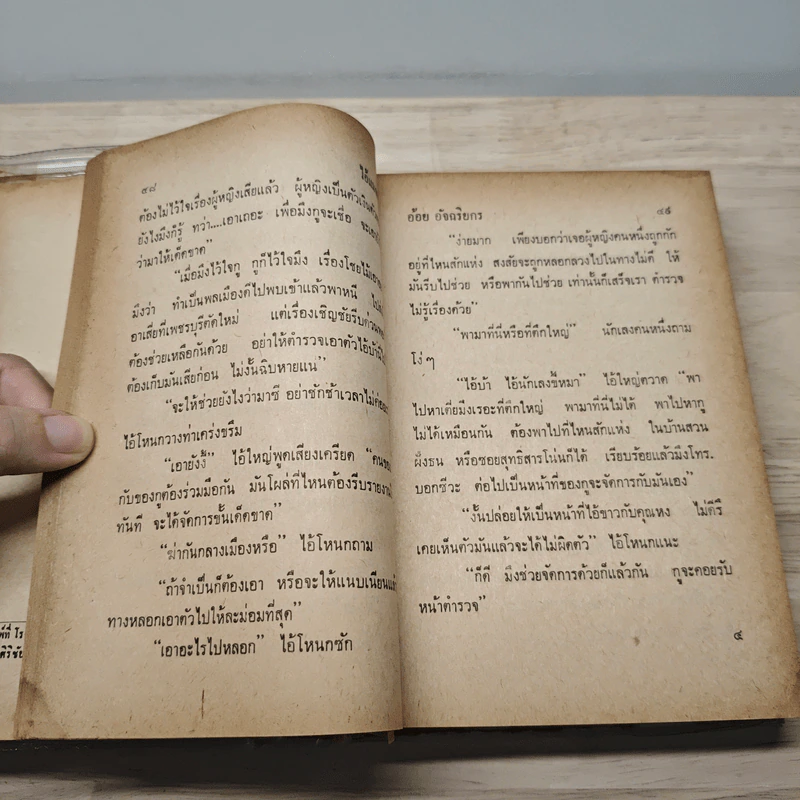 ๔๘
ต้องไม่ไว้ใจเรื่องผู้หญิงเสียแล้ว ผู้หญิงเป็นตัว
ยังไงมึงก็รู้ ทว่า....เอาเถอะ เพื่อมึงกูจะเชื่อ
ว่ามาให้เด็ดขาด”
“เมื่อมึงไว้ใจกู กูก็ไว้ใจมึง เรื่องโชยไม้
มึงว่า ทำเป็นพลเมืองดีไปพบเข้าแล้วพาหนี
อาเสี่ยที่เพชรบุรีตัดใหม่ แต่เรื่องเชิญชัยรีบด่วน
ต้องช่วยเหลือกันด้วย อย่าให้ตำรวจเอาตัวไอ้บ้านี่
ต้องเก็บมันเสียก่อน ไม่งั้นฉิบหายแน่”
“จะให้ช่วยยังไงว่ามาซี อย่าชักช้าเวลาไม่ค่อย
ไอ้โหนกวางท่าเคร่งขรึม
“เอายังงี้” ไอ้ใหญ่พูดเสียงเครียด “คนของ
กับของกูต้องร่วมมือกัน มันโผล่ที่ไหนต้องรีบรายงาน
ทันที จะได้จัดการขั้นเด็ดขาด”
“ฆ่ากันกลางเมืองหรือ” ไอ้โหนกถาม
“ถ้าจำเป็นก็ต้องเอา หรือจะให้แนบเนียน
ทางหลอกเอาตัวไปให้ละม่อมที่สุด”
“เอาอะไรไปหลอก” ไอ้โหนกซัก
อ้อย อัจฉริยกร ๔๙
“ง่ายมาก เพียงบอกว่าเจอผู้หญิงคนหนึ่งถูกกัก
อยู่ที่ไหนสักแห่ง สงสัยจะถูกหลอกลวงไปในทางไม่ดี ให้
มันรีบไปช่วย หรือพากันไปช่วย เท่านั้นก็เสร็จเรา ตำรวจ
ไม่รู้เรื่องด้วย”
“พามาที่นี่หรือที่ตึกใหญ่” นักเลงคนหนึ่งถาม
โง่ ๆ
“ไอ้บ้า ไอ้นักเลงขี้หมา” ไอ้ใหญ่ตวาด “พา
ไปหาเตี่ยมึงเรอะที่ตึกใหญ่ พามาที่นี่ไม่ได้ พาไปหากู
ไม่ได้เหมือนกัน ต้องพาไปที่ไหนสักแห่ง ในบ้านสวน
ฝั่งธน หรือซอยสุทธิสารโน่นก็ได้ เรียบร้อยแล้วมึงโทร.
บอกซีวะ ต่อไปเป็นหน้าที่ของกูจะจัดการกับมันเอง”
“งั้นปล่อยให้เป็นหน้าที่ไอ้ขาวกับคุณหง ไม่ดีรึ
เคยเห็นตัวมันแล้วจะได้ไม่ผิดตัว” ไอ้โหนกแนะ
“ก็ดี มึงช่วยจัดการด้วยก็แล้วกัน กูจะคอยรับ
หน้าตำรวจ”
๔